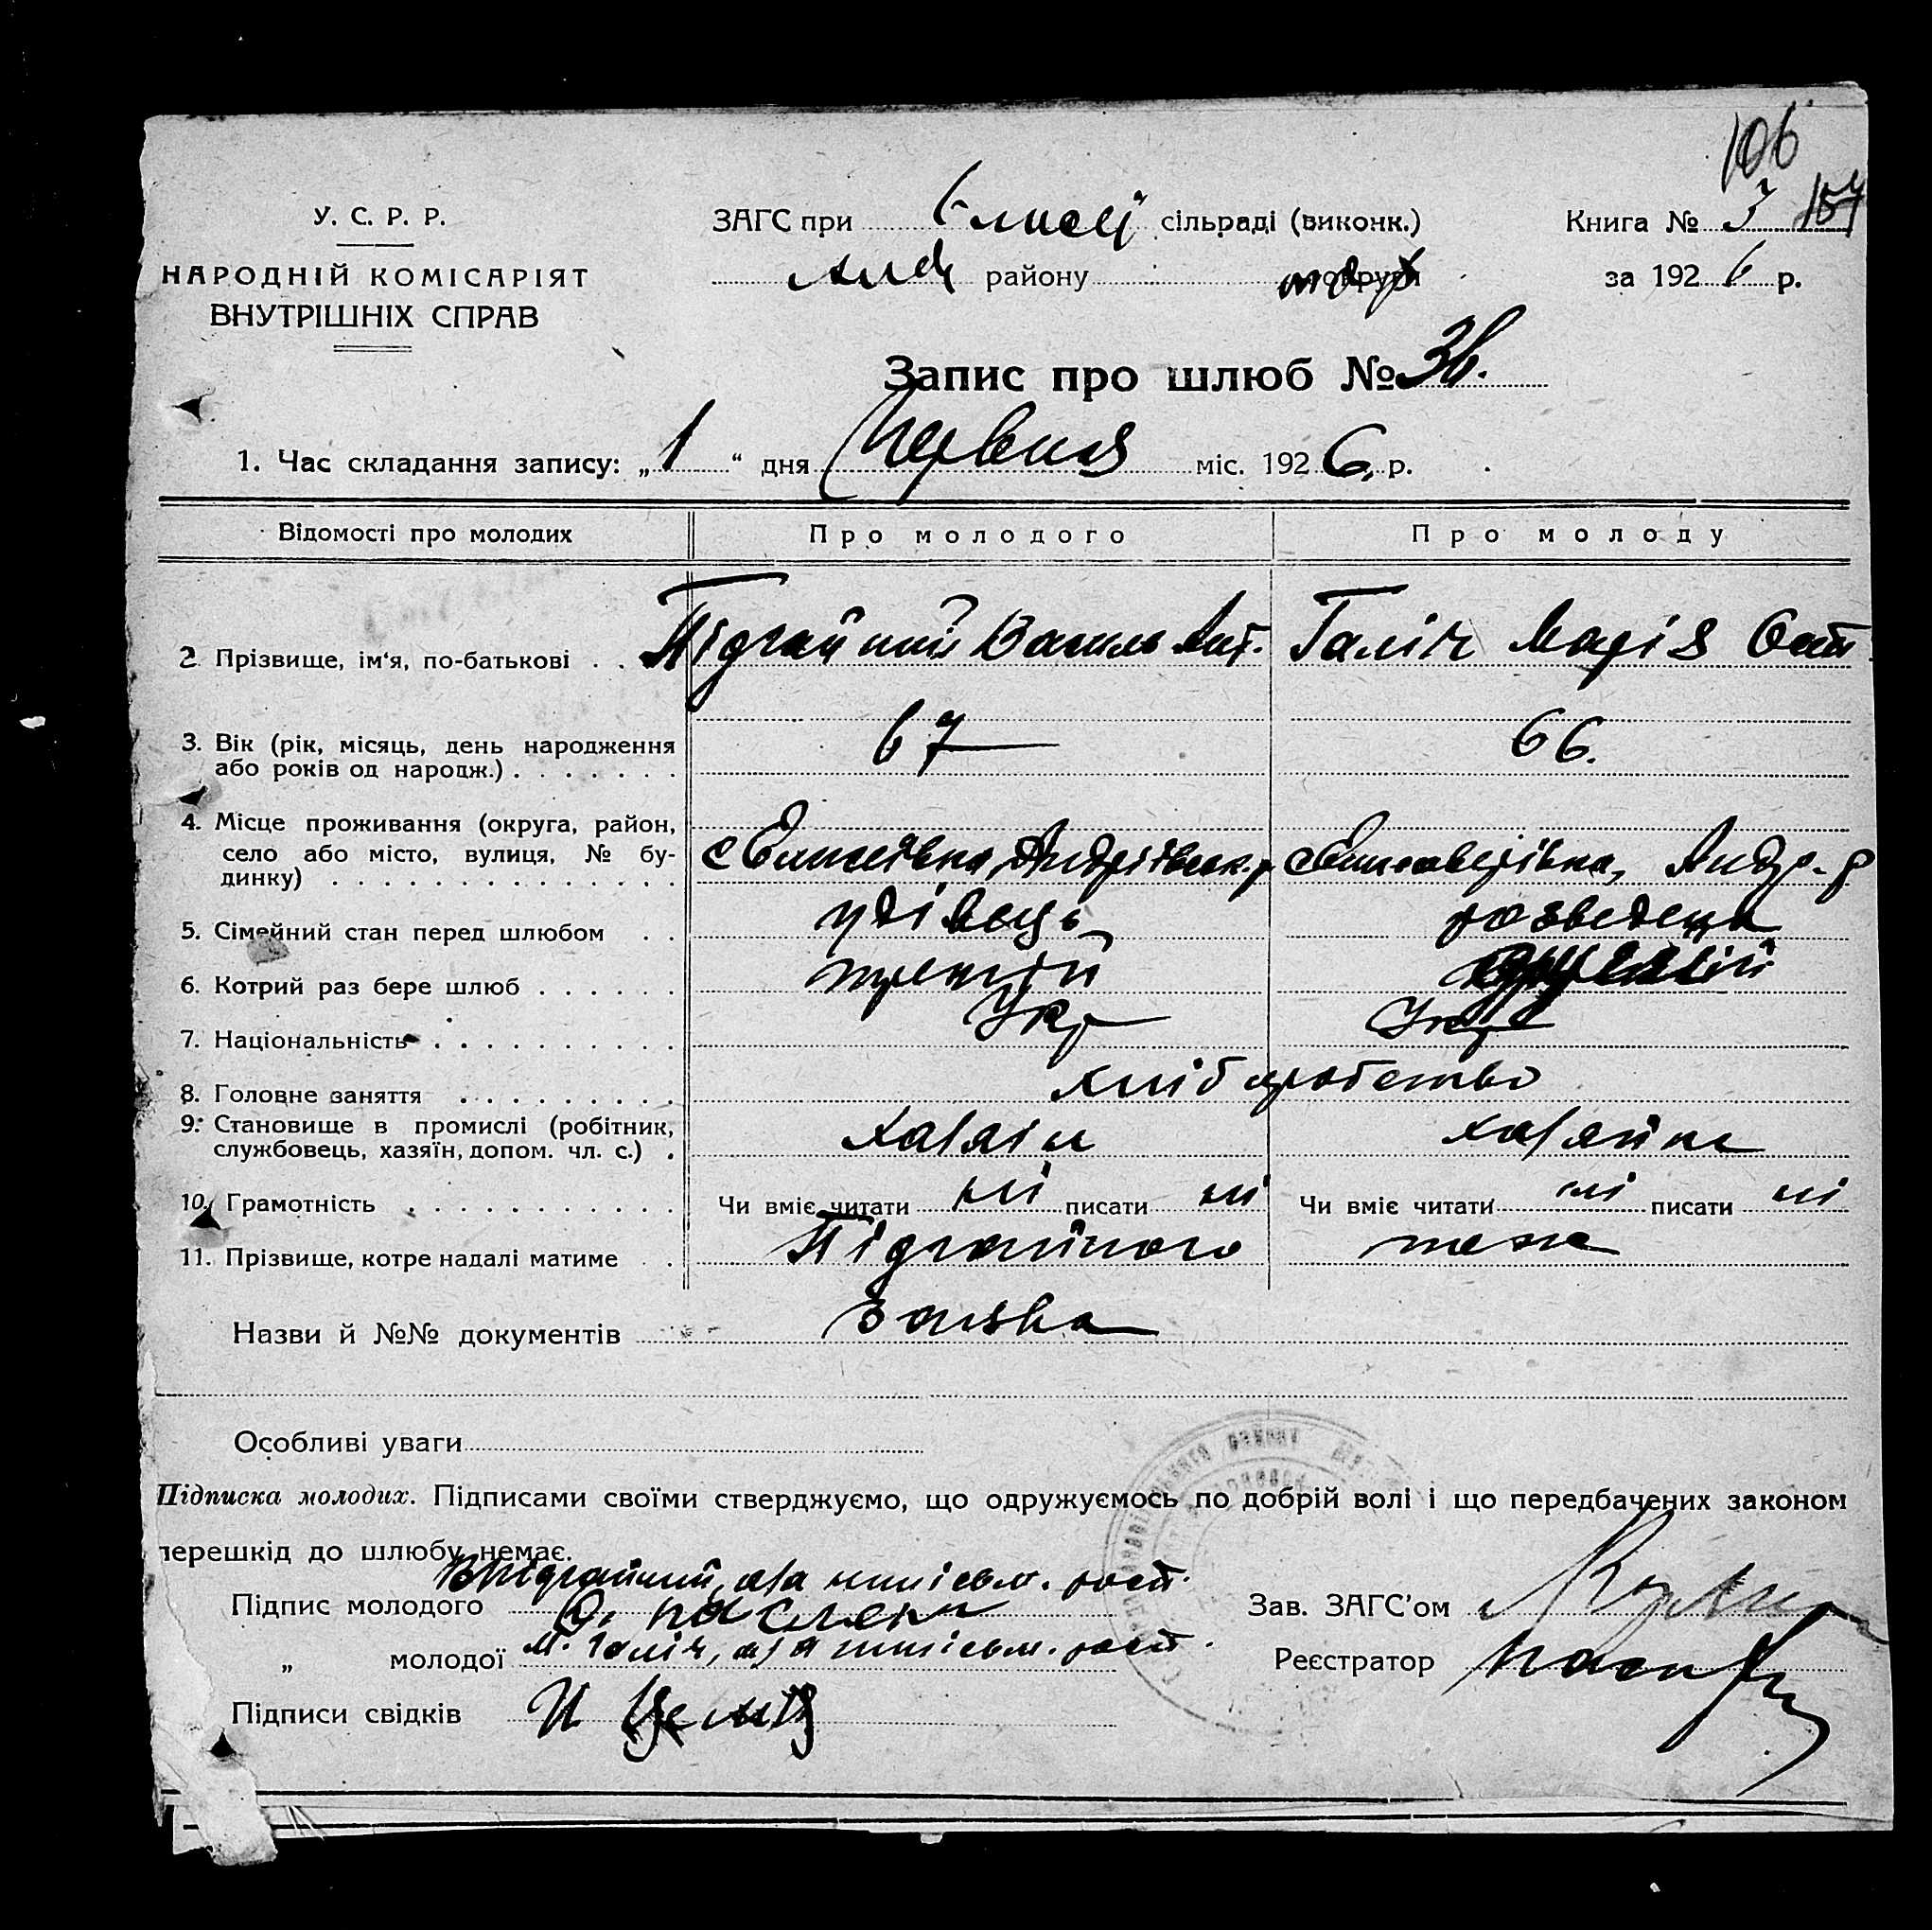 106
У. С. Р. Р.
ЗАГС при Єлисеј сільраді (виконк.)
Книга № 3 157
НАРОДНІЙ КОМІСАРІЯТ
ВНУТРІШНІХ СПРАВ
району округи
за 1926 р.
Запис про шлюб № 36.
1. Час складання запису: „1“ дня Червня міс. 1926. р.
Відомості про молодих Про молодого Про молоду
2 Прізвище, ім‘я, по-батькові . . Підгайний Василь Ант. Галіч Марія Ост
3. Вік (рік, місяць, день народження
або років од народж.) . . . . . . . 67 66.
4. Місце проживання (округа, район,
село або місто, вулиця, № бу-
динку) . . . . . . . . . . . . . . с Єлисеївка, Андріівськ. р с Єлисаверівка, Андр. р
5. Сімейний стан перед шлюбом . . удівець розведена
6. Котрий раз бере шлюб . . . . . . третій
7. Національність . . . . . . . . . . Укр Укр
8. Головне заняття . . . . . . . . . хліборобство
9. Становище в промислі (робітник,
службовець, хазяїн, допом. чл. с.) . хазяін хазяйка
10. Грамотність . . . . . . . . . . . Чи вміє читати ні писати ні Чи вміє читати ні писати ні
11. Прізвище, котре надалі матиме . . Підгайного теже
Назви й №№ документів заява
Особливі уваги
Підписка молодих. Підписами своїми стверджуємо, що одружуємось по добрій волі і що передбачених законом
перешкід до шлюбу немає.
В Підгайний, а за неписьм. розп.
Підпис молодого
Зав. ЗАГС’ом
М. Галіч, а за неписьм. розп.
„ молодої
Реєстратор
Підписи свідків И